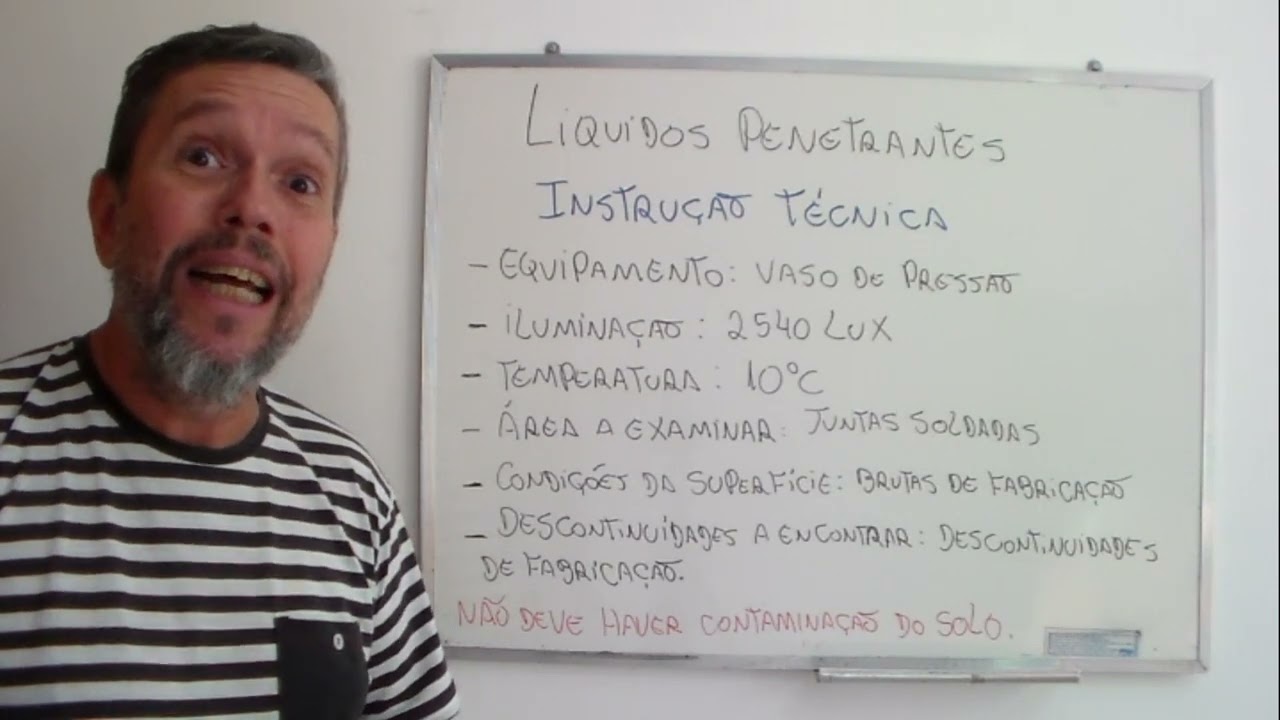 LIQUIDOS PENETRANTES
INSTRUÇÃO TÉCNICA
- EQUIPAMENTO: VASO DE PRESSÃO
- ILUMINAÇÃO: 2540 LUX
- TEMPERATURA: 10°C
- ÁREA A EXAMINAR: JUNTAS SOLDADAS
- CONDIÇÕES DA SUPERFÍCIE: BRUTAS DE FABRICAÇÃO
- DESCONTINUIDADES A ENCONTRAR: DESCONTINUIDADES
DE FABRICAÇÃO.
NÃO DEVE HAVER CONTAMINAÇÃO DO SOLO.